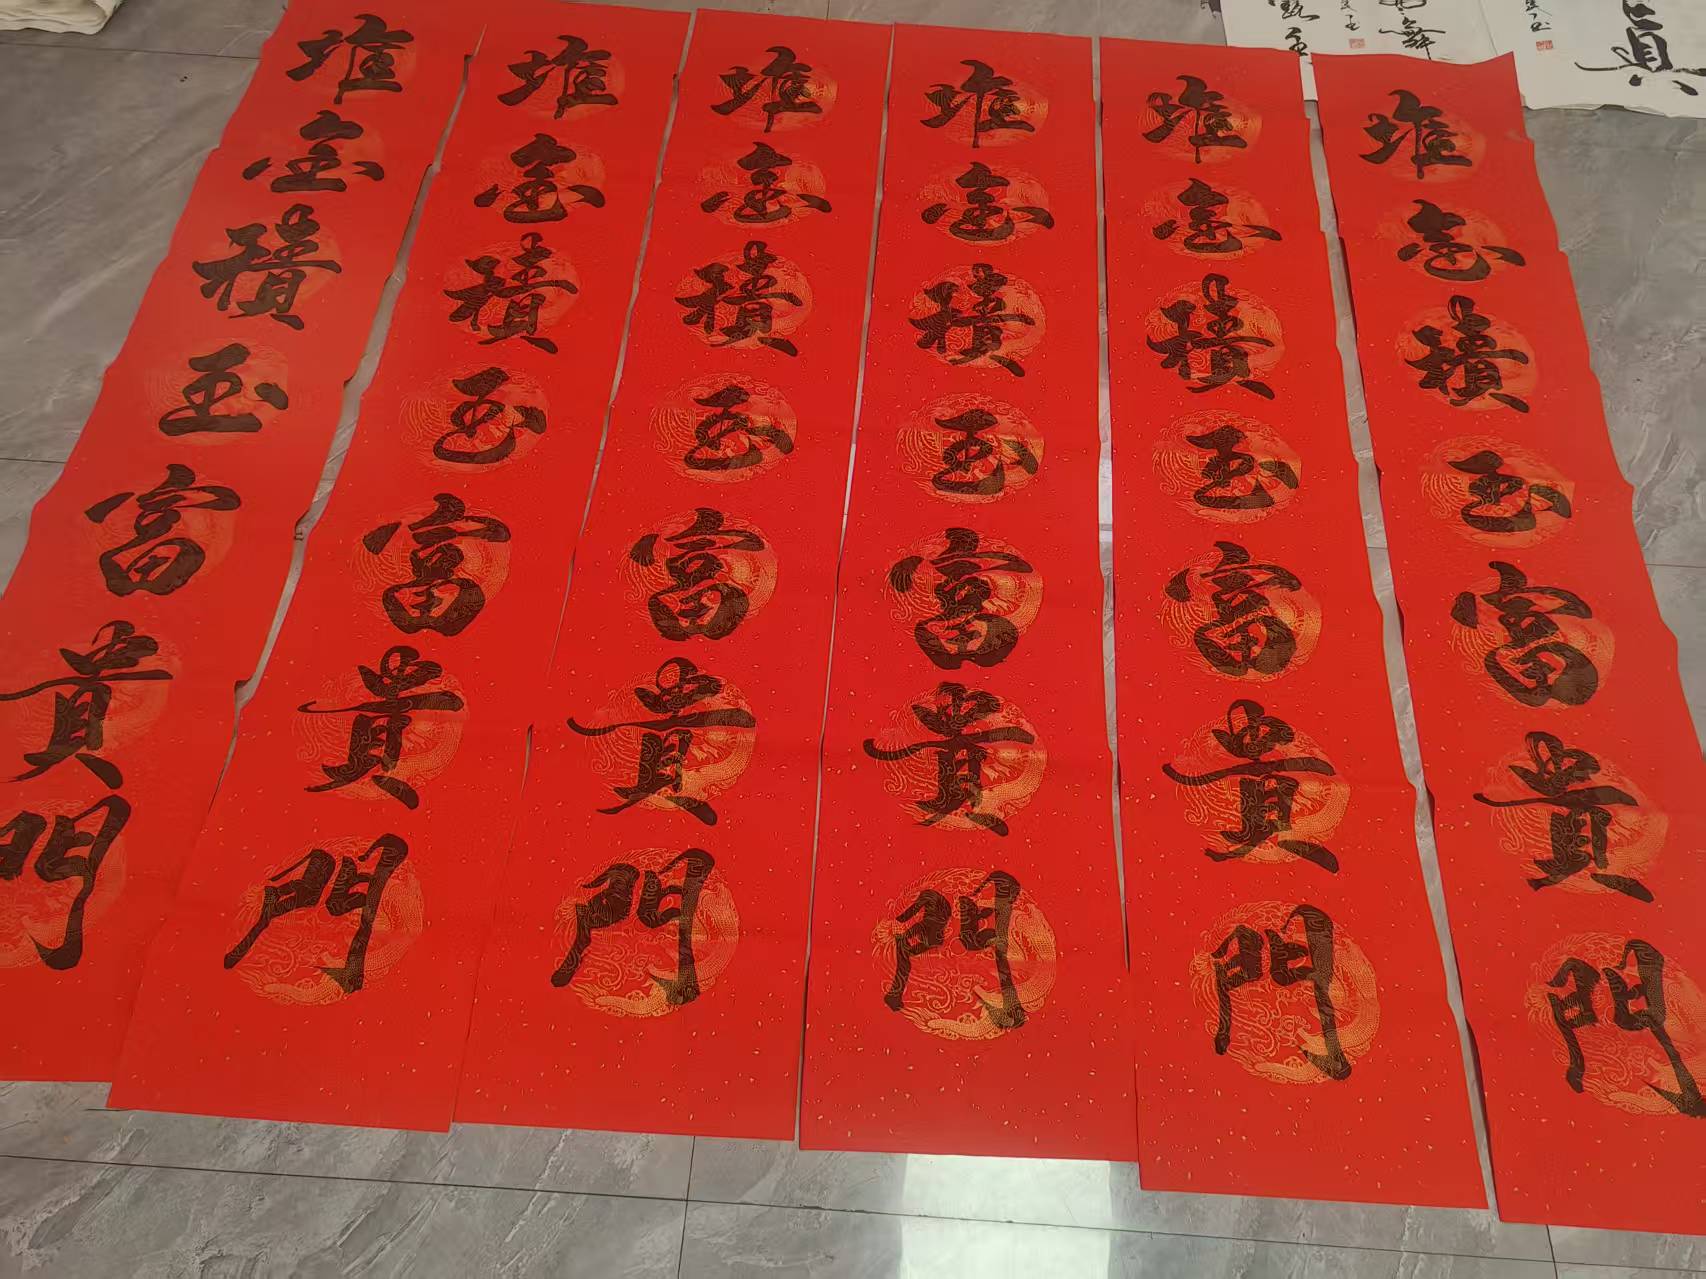 堆金積玉富貴門
堆金積玉富貴門
堆金積玉富貴門
堆金積玉富貴門
堆金積玉富貴門
堆金積玉富貴門